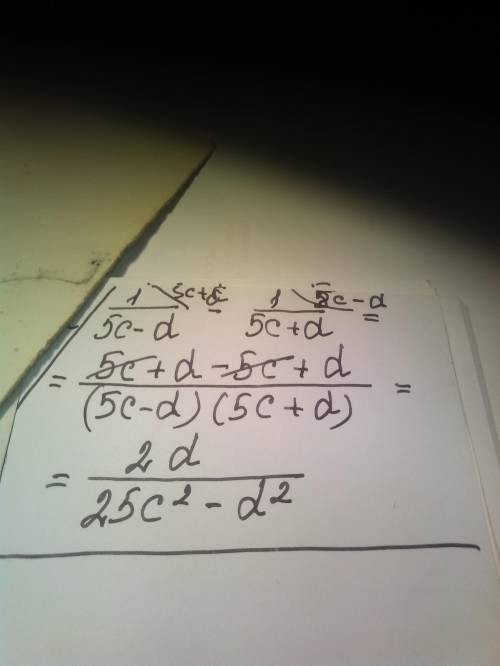 1 5c+d 1 5c-d
5c-d - 5c+d =
= 5c+d-5c+d =
(5c-d)(5c+d)
= 2d
25c²-d²